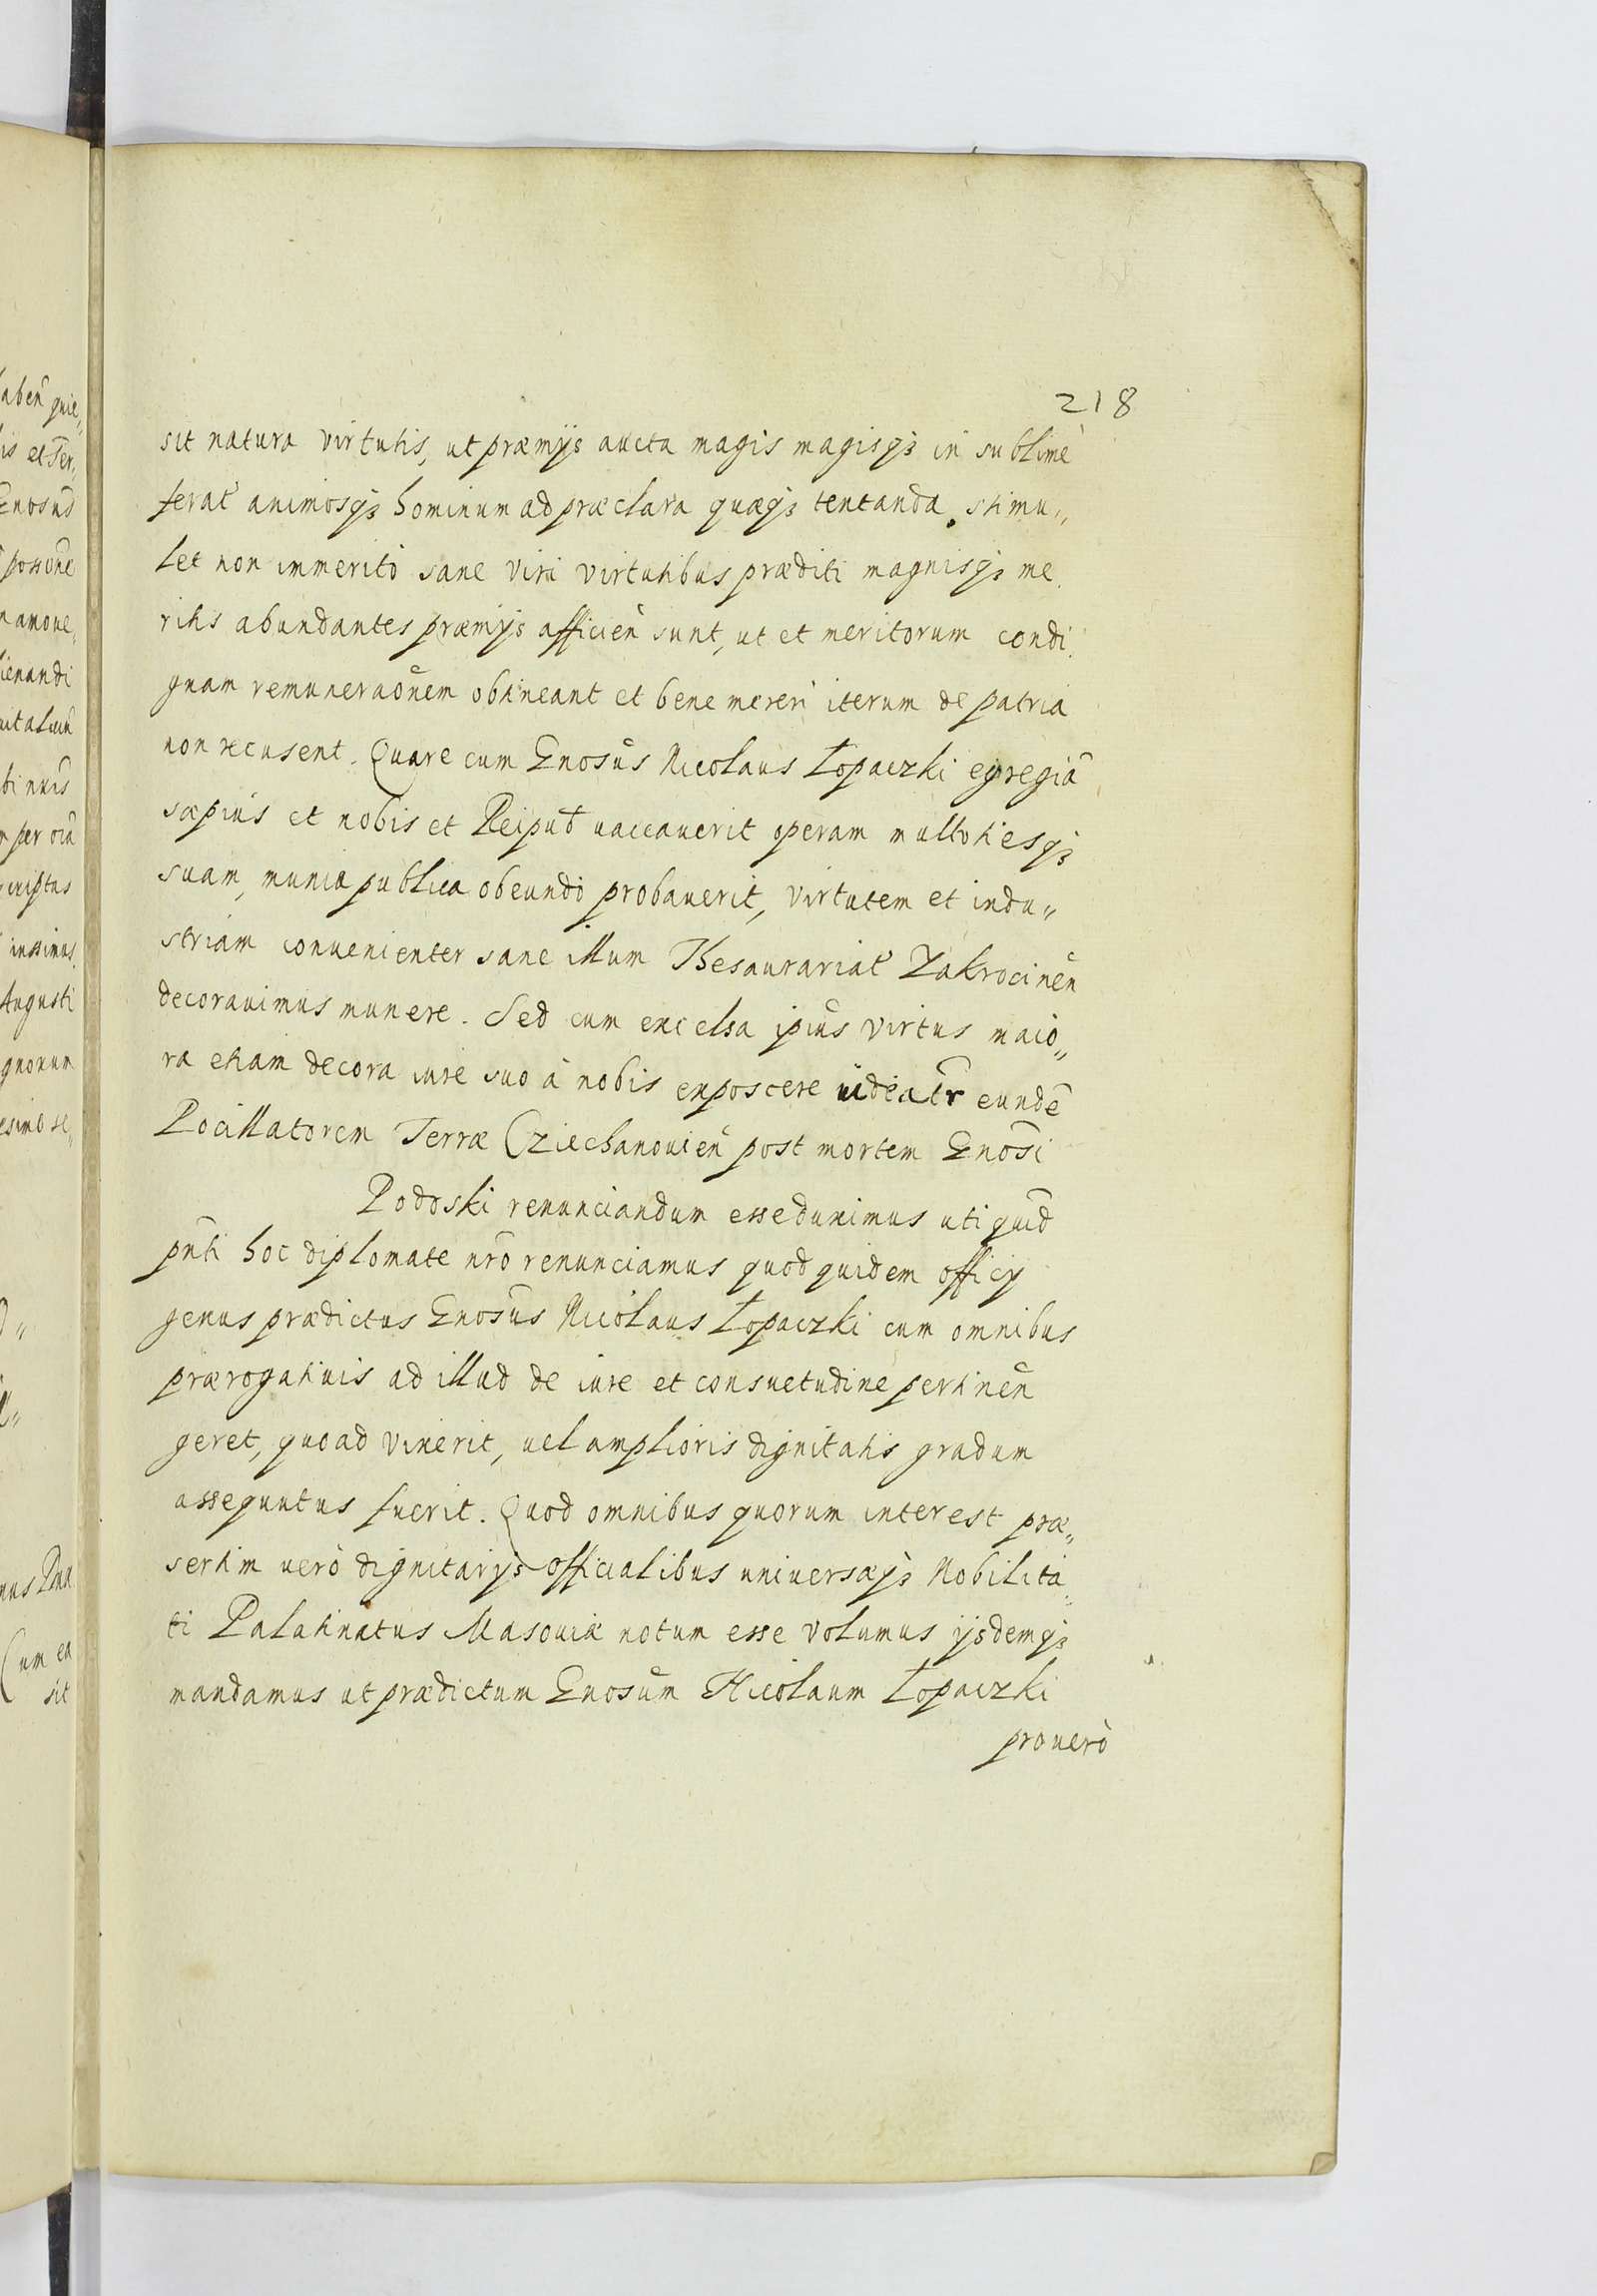 218
sit natura virtutis, ut præmijs aucta magis magisqꝫ in sublimè
ferat̃ animosqꝫ hominum ad præclara quæqꝫ tentanda stimu„
let non immeritò sane viri virtutibus præditi magnisqꝫ me„
ritis abundantes præmijs afficień sunt, ut et meritorum condi„
gnam remuneraõnem obtineant et bene mereri iterum de patria
non recusent. Quare cum Gnosũs Nicolaus Łopaczki egregiã
sæpius et nobis et Reipub̃ uaccauerit operam multotiesqꝫ
suam, munia publica obeundo probauerit, virtutem et indu„
striam conuenienter sane illum Thesaurariat̃ Zakrocinen̄
decorauimus munere. Sed cum excelsa ipiũs virtus maio„
ra etiam decora iure suo à nobis exposcere uideat̃r eundẽ
Pocillatorem Terræ Cziechanouień post mortem Gnosi
Podoski renunciandum esse duximus uti quid̃
pñti hoc diplomate nr̃o renunciamus quod quidem officij
genus prædictus Gnosũs Nicolaus Łopaczki cum omnibus
prærogatiuis ad illud de iure et consuetudine pertineñ
geret, quoad vixerit, uel amplioris dignitatis gradum
assequutus fuerit. Quod omnibus quorum interest præ„
sertim uerò dignitarijs officialibus uniuersæqꝫ Nobilita„
ti Palatinatus Masouiæ notum esse volumus ijsdemqꝫ
mandamus ut prædictum Gnosũm Nicolaum Łopaczki
pro uerò